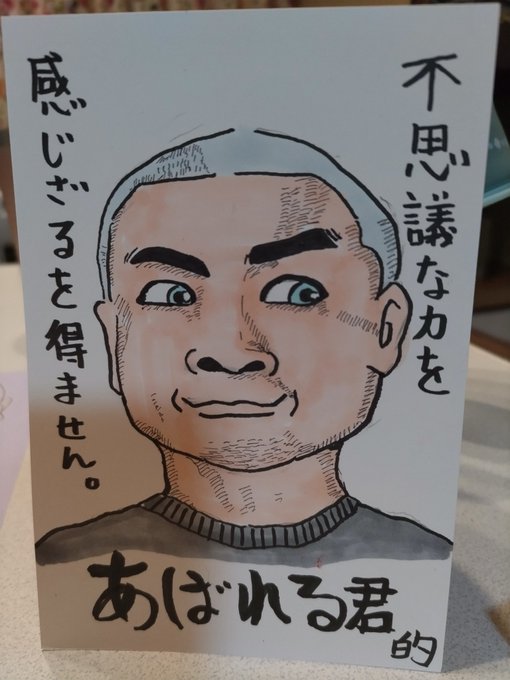 不思議な力を
感じざるを得ません。
あばれる君
的